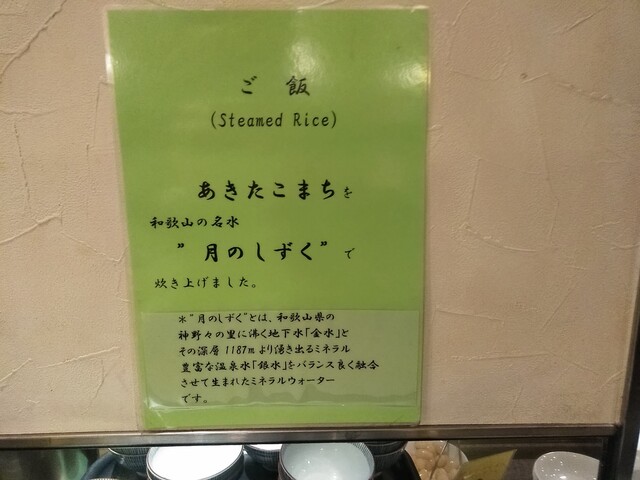 ご 飯
(Steamed Rice)
あきたこまちを
和歌山の名水
”月のしずく”で
炊き上げました。
＊”月のしずく”とは、和歌山県の
神野々の里に沸く地下水「金水」と
その深層 1187m より湧き出るミネラル
豊富な温泉水「銀水」をバランス良く融合
させて生まれたミネラルウォーター
です。